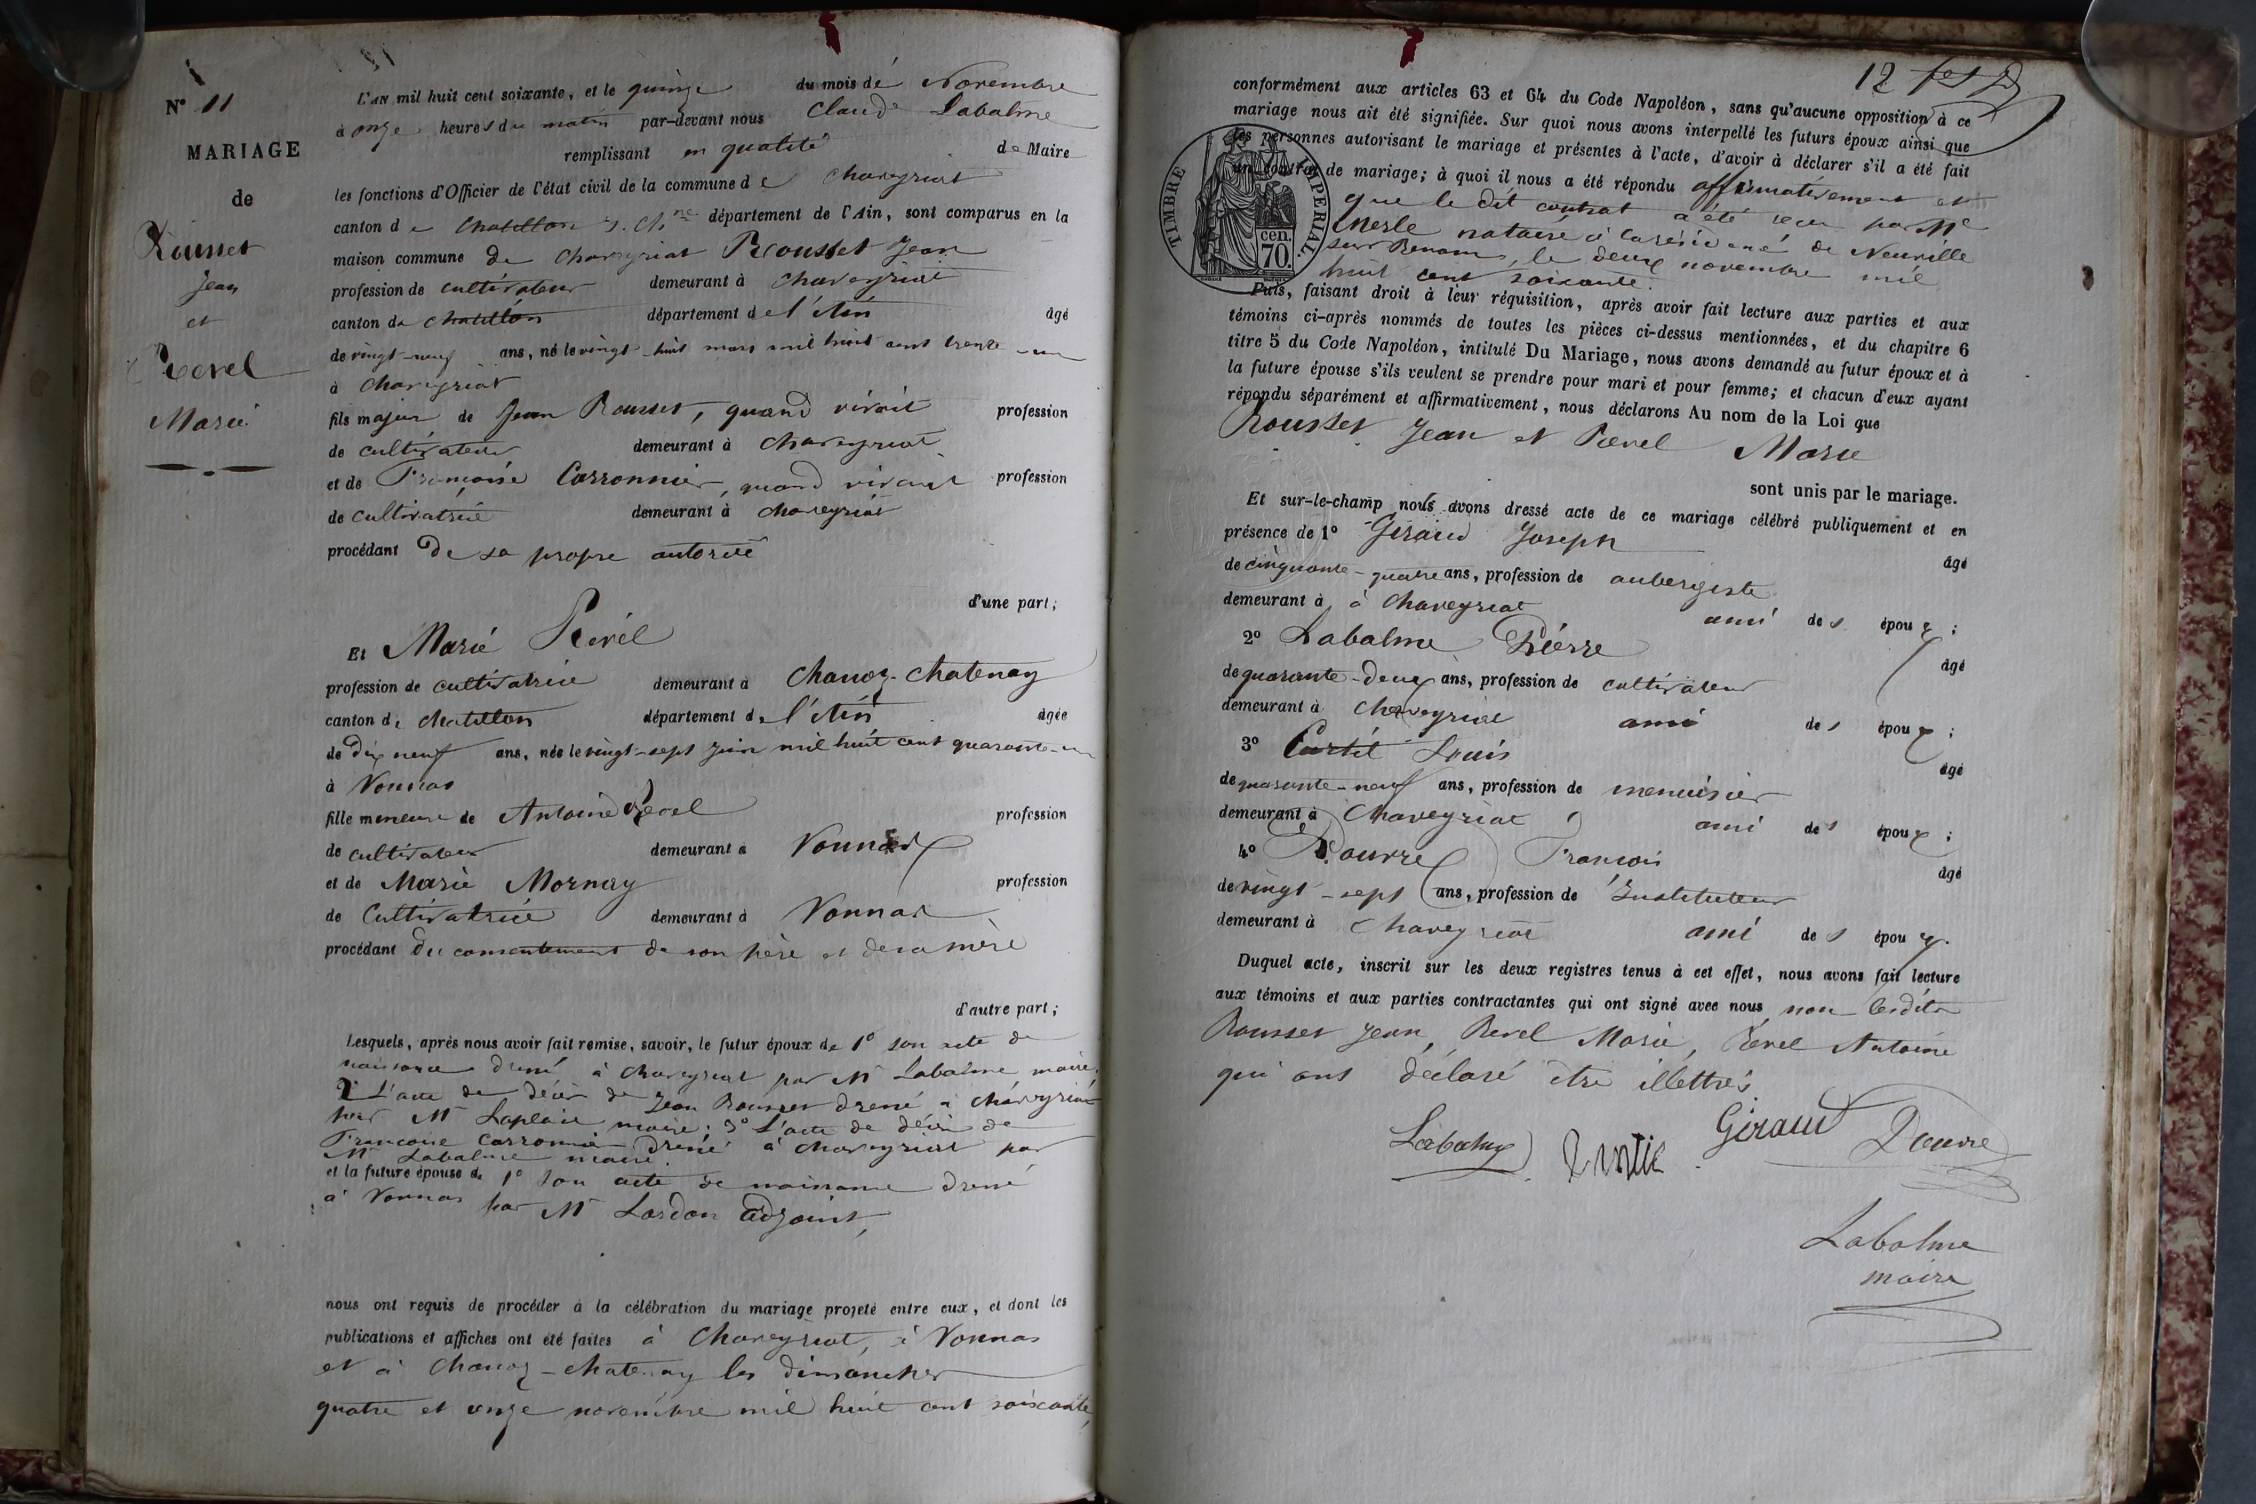 N° 11
MARIAGE
de
Rousset
Jean
et
Revel
Marie
L'AN mil huit cent soixante, et le quinze du mois de Novembre
à onze heures du matin par-devant nous Claude Labalme
remplissant en qualité de Maire
les fonctions d'Officier de l'état civil de la commune de Chaveyriat
canton de Chatillon s. Ch.ne département de l'Ain, sont comparus en la
maison commune de Chaveyriat Rousset Jean
profession de cultivateur demeurant à Chaveyriat
canton de Chatillon département de l'Ain âgé
de vingt-neuf ans, né le vingt-huit mars mil huit cent trente-un
à Chaveyriat
fils majeur de Jean Rousset, quand vivait profession
de cultivateur demeurant à Chaveyriat
et de Francoise Carronnier, quand vivait profession
de cultivatrice demeurant à Chaveyriat
procédant De sa propre autorité
d'une part;
Et Marie Revel
profession de cultivatrice demeurant à Chanoz-Chatenay
canton de Chatillon département de l'Ain âgée
de dix neuf ans, née le vingt-sept Juin mil huit cent quarante-un
à Vonnas
fille mineure de Antoine Revel profession
de cultivateur demeurant à Vonnas
et de Marie Mornay profession
de Cultivatrice demeurant à Vonnas
procédant Du consentement de son père et de sa mère
d'autre part;
Lesquels, après nous avoir fait remise, savoir, le futur époux de 1° son acte de
naissance dressé à Chaveyriat par Mr Labalme maire.
2° L'acte de décès de Jean Rousset dressé à Chaveyriat
par Mr Laplace maire; 3° L'acte de décès de
Francoise Carronnier dressé à Chaveyriat par
Mr Labalme maire.
et la future épouse de 1° Son acte de naissance dressé
à Vonnas par Mr Lardon adjoint,
nous ont requis de procéder à la célébration du mariage projeté entre eux, et dont les
publications et affiches ont été faites à Chaveyriat, à Vonnas
et à Chanoz-Chatenay les dimanches
quatre et onze novembre mil huit cent soixante,
12
conformément aux articles 63 et 64 du Code Napoléon, sans qu'aucune opposition à ce
mariage nous ait été signifiée. Sur quoi nous avons interpellé les futurs époux ainsi que
les personnes autorisant le mariage et présentes à l'acte, d'avoir à déclarer s'il a été fait
un contrat de mariage; à quoi il nous a été répondu affirmativement et
que le dit contrat a été reçu par Me
Merle notaire à la résidence de Neuville
sur Renom, le deux novembre mil
huit cent soixante.
TIMBRE IMPERIAL.
cen.
70.
Puis, faisant droit à leur réquisition, après avoir fait lecture aux parties et aux
témoins ci-après nommés de toutes les pièces ci-dessus mentionnées, et du chapitre 6
titre 5 du Code Napoléon, intitulé Du Mariage, nous avons demandé au futur époux et à
la future épouse s'ils veulent se prendre pour mari et pour femme; et chacun d'eux ayant
répondu séparément et affirmativement, nous déclarons Au nom de la Loi que
Rousset Jean et Revel Marie
sont unis par le mariage.
Et sur-le-champ nous avons dressé acte de ce mariage célébré publiquement et en
présence de 1° Giraud Joseph âgé
de cinquante-quatre ans, profession de aubergiste
demeurant à à Chaveyriat ami des époux;
2° Labalme Pierre âgé
de quarante-deux ans, profession de cultivateur
demeurant à Chaveyriat ami des époux;
3° Curtil Louis âgé
de quarante-neuf ans, profession de menuisier
demeurant à Chaveyriat ami des époux;
4° François âgé
de vingt-sept ans, profession de Instituteur
demeurant à Chaveyriat ami des époux.
Duquel acte, inscrit sur les deux registres tenus à cet effet, nous avons fait lecture
aux témoins et aux parties contractantes qui ont signé avec nous, non lesdits
Rousset Jean, Revel Marie, Revel Antoine
qui ont déclaré être illettrés
Labalme Giraud
Labalme
maire